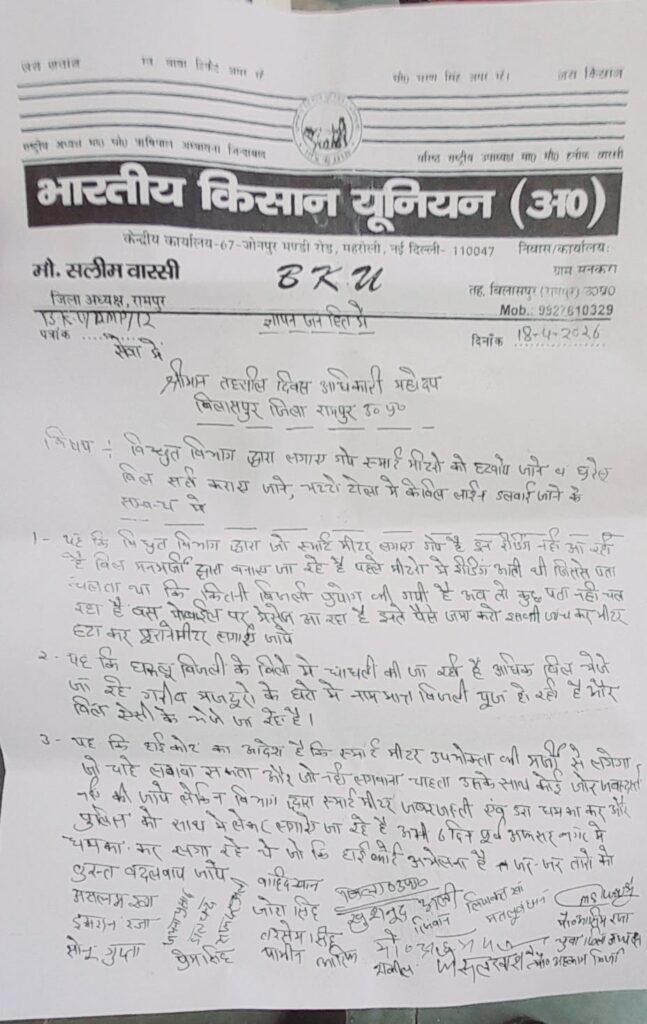 जय जवान बाबा टिकैत अमर रहें चौ० चरण सिंह अमर रहें। जय किसान
राष्ट्रीय अध्यक्ष जिन्दाबाद वरिष्ठ राष्ट्रीय उपाध्यक्ष मा० मौ० हनीफ वारसी
भारतीय किसान यूनियन (अ०)
केन्द्रीय कार्यालय-67-जोनपुर मण्डी रोड, महरोली, नई दिल्ली- 110047 निवास/कार्यालय:
मौ. सलीम वारसी B K U ग्राम मनकरा
जिला अध्यक्ष, रामपुर तह. बिलासपुर (रामपुर) उ०प्र०
Mob.: 9927610329
ज्ञापन जन हित में
पत्रांक दिनाँक 18-4-2026
सेवा में
श्रीमान तहसील दिवस अधिकारी महोदय
बिलासपुर जिला रामपुर उ० प्र०
विषय :- विद्युत विभाग द्वारा लगाए गये स्मार्ट मीटरो को हटवाये जाने व घरेलू
बिल सही कराए जाने, टोला मे केबिल लाईन डलवाई जाने के
सम्बन्ध मे
1- यह कि विद्युत विभाग द्वारा जो स्मार्ट मीटर लगाए गये है इन रीडिंग नही आ रही
है बिल मनमर्जी द्वारा बनाए जा रहे है पहले मीटरो मे रीडिंग आती थी जिससे पता
चलता था कि कितनी बिजली उपयोग की गयी है अब तो कुछ पता नही चल
रहा है बस मोबाईल पर मैसेज आ रहा है इतने पैसे जमा करो इसकी जांच कर मीटर
हटा कर पुराने मीटर लगाये जाये
2- यह कि घरेलू बिजली के बिलो मे धांधली की जा रही है अधिक बिल भेजे
जा रहे गरीब मजदूरो के घरो मे नाम मात्र बिजली यूज हो रही है और
बिल ऐसी के भेजे जा रहे है।
3- यह कि हाईकोर्ट का आदेश है कि स्मार्ट मीटर उपभोक्ता की मर्जी से लगेगा
जो चाहे लगवा सकता और जो नही लगवाना चाहता उसके साथ कोई जोर जबरदस्ती
नही की जाये लेकिन विभाग द्वारा स्मार्ट मीटर जबरजस्ती एंव डरा धमका कर और
पुलिस को साथ मे लेकर लगाये जा रहे है अभी 6 दिन पूर्व नगर मे
धमका कर लगा रहे थे जो कि हाई कोर्ट अवहेलना है जर-जर तारो को
तुरन्त बदलवाया जाये
वाहिद खान
असलम रजा जोरा सिंह
इमरान रजा तरसेम सिंह
सोनू गुप्ता प्रेम सिंह यामीन